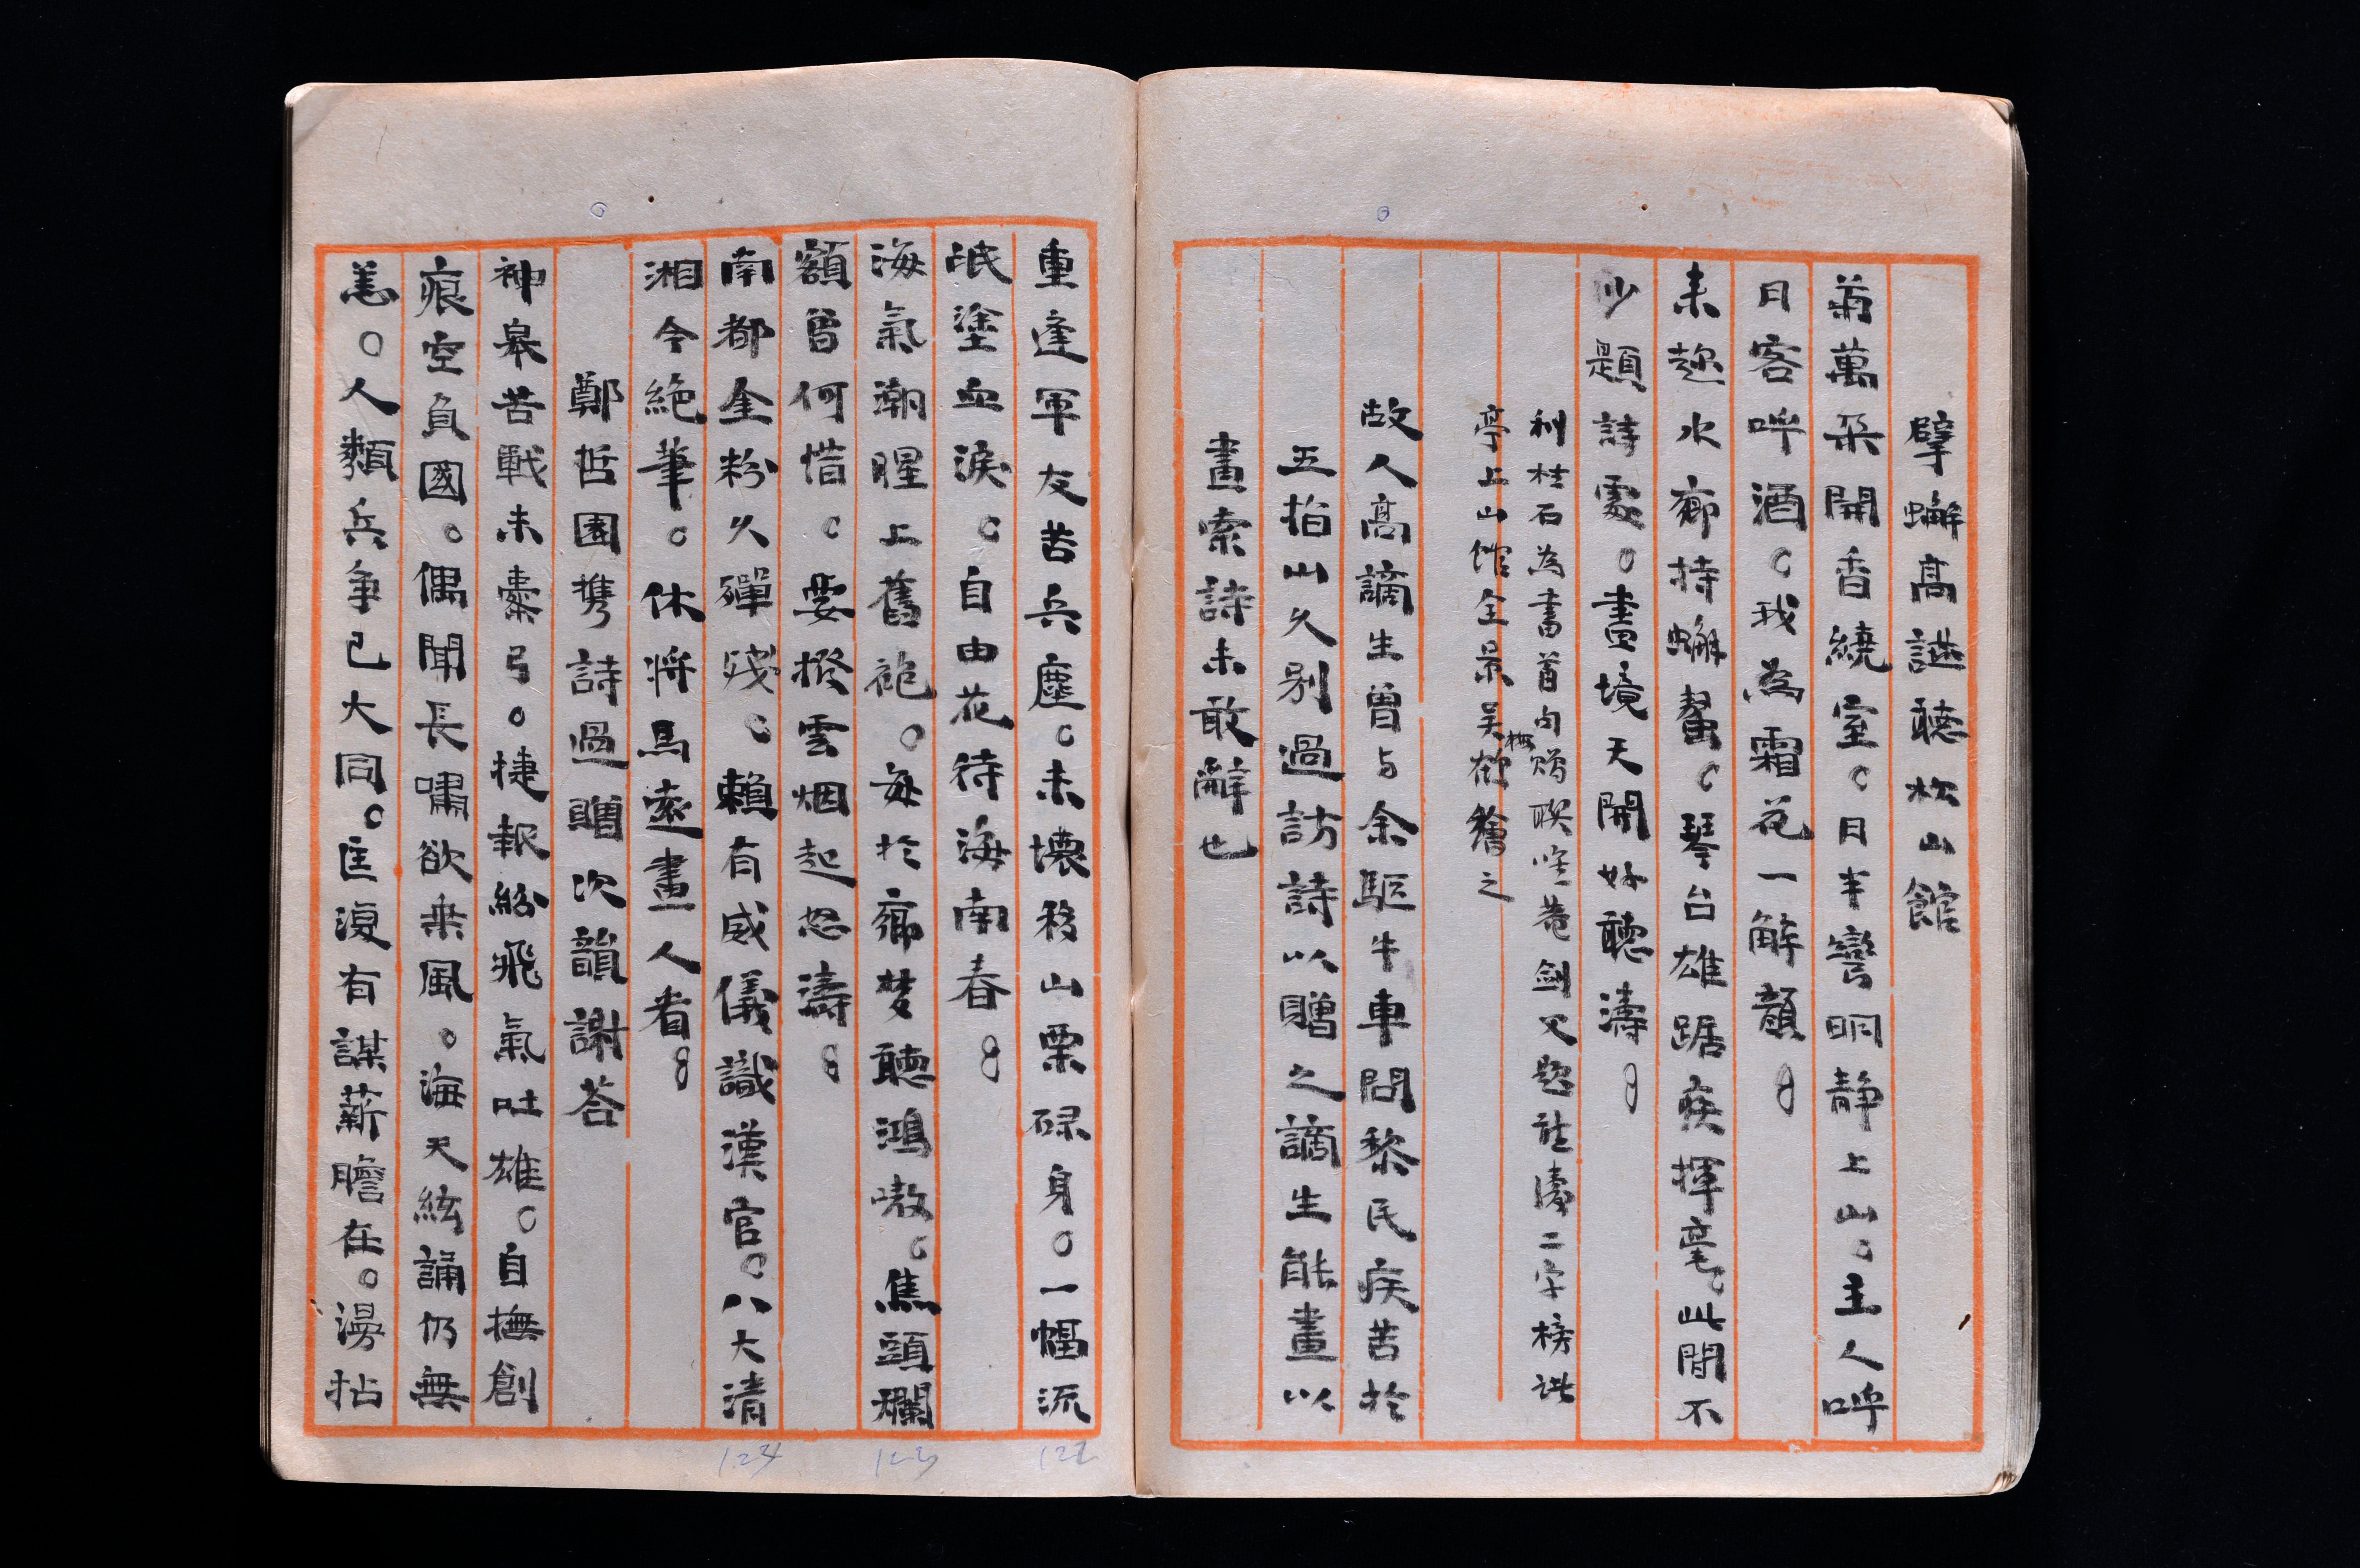 擘蟹高談聽松山館
菊萬朵開香繞室。日半彎明静上山。主人呼
日客呼酒。我為霜花一解顏。
来趁水鄉持蟹螯。琴台雄踞疾揮毫。此間不
少題詩處。畫境天開好聽濤。
利桂石為書首句贈聯 菴劍父題聽濤二字榜於
亭上山館全景吴梅鶴繪之
故人高謫生曾与余驅牛車問黎民疾苦於
五指山久别過訪詩以贈之謫生能畫以
畫索詩未敢辭也
重逢軍友苦兵塵。未壞移山栗碌身。一幅流
氓塗血淚。自由花待海南春。
海氣潮腥上舊袍。每於鄉梦聽鴻嗷。焦頭爛
額曾何惜。要撥雲烟起怒濤。
南都金粉久殫殘。賴有威儀識漢官。八大清
湘今絶筆。休将馬遠畫人看。
鄭哲園携詩過贈次韻謝荅
神皋苦戰未櫜弓。捷報紛飛氣吐雄。自撫創
痕空負國。偶聞長嘯欲乘風。海天絃誦仍無
恙。人類兵争已大同。匡復有謀薪膽在。漫拈
122
123
124